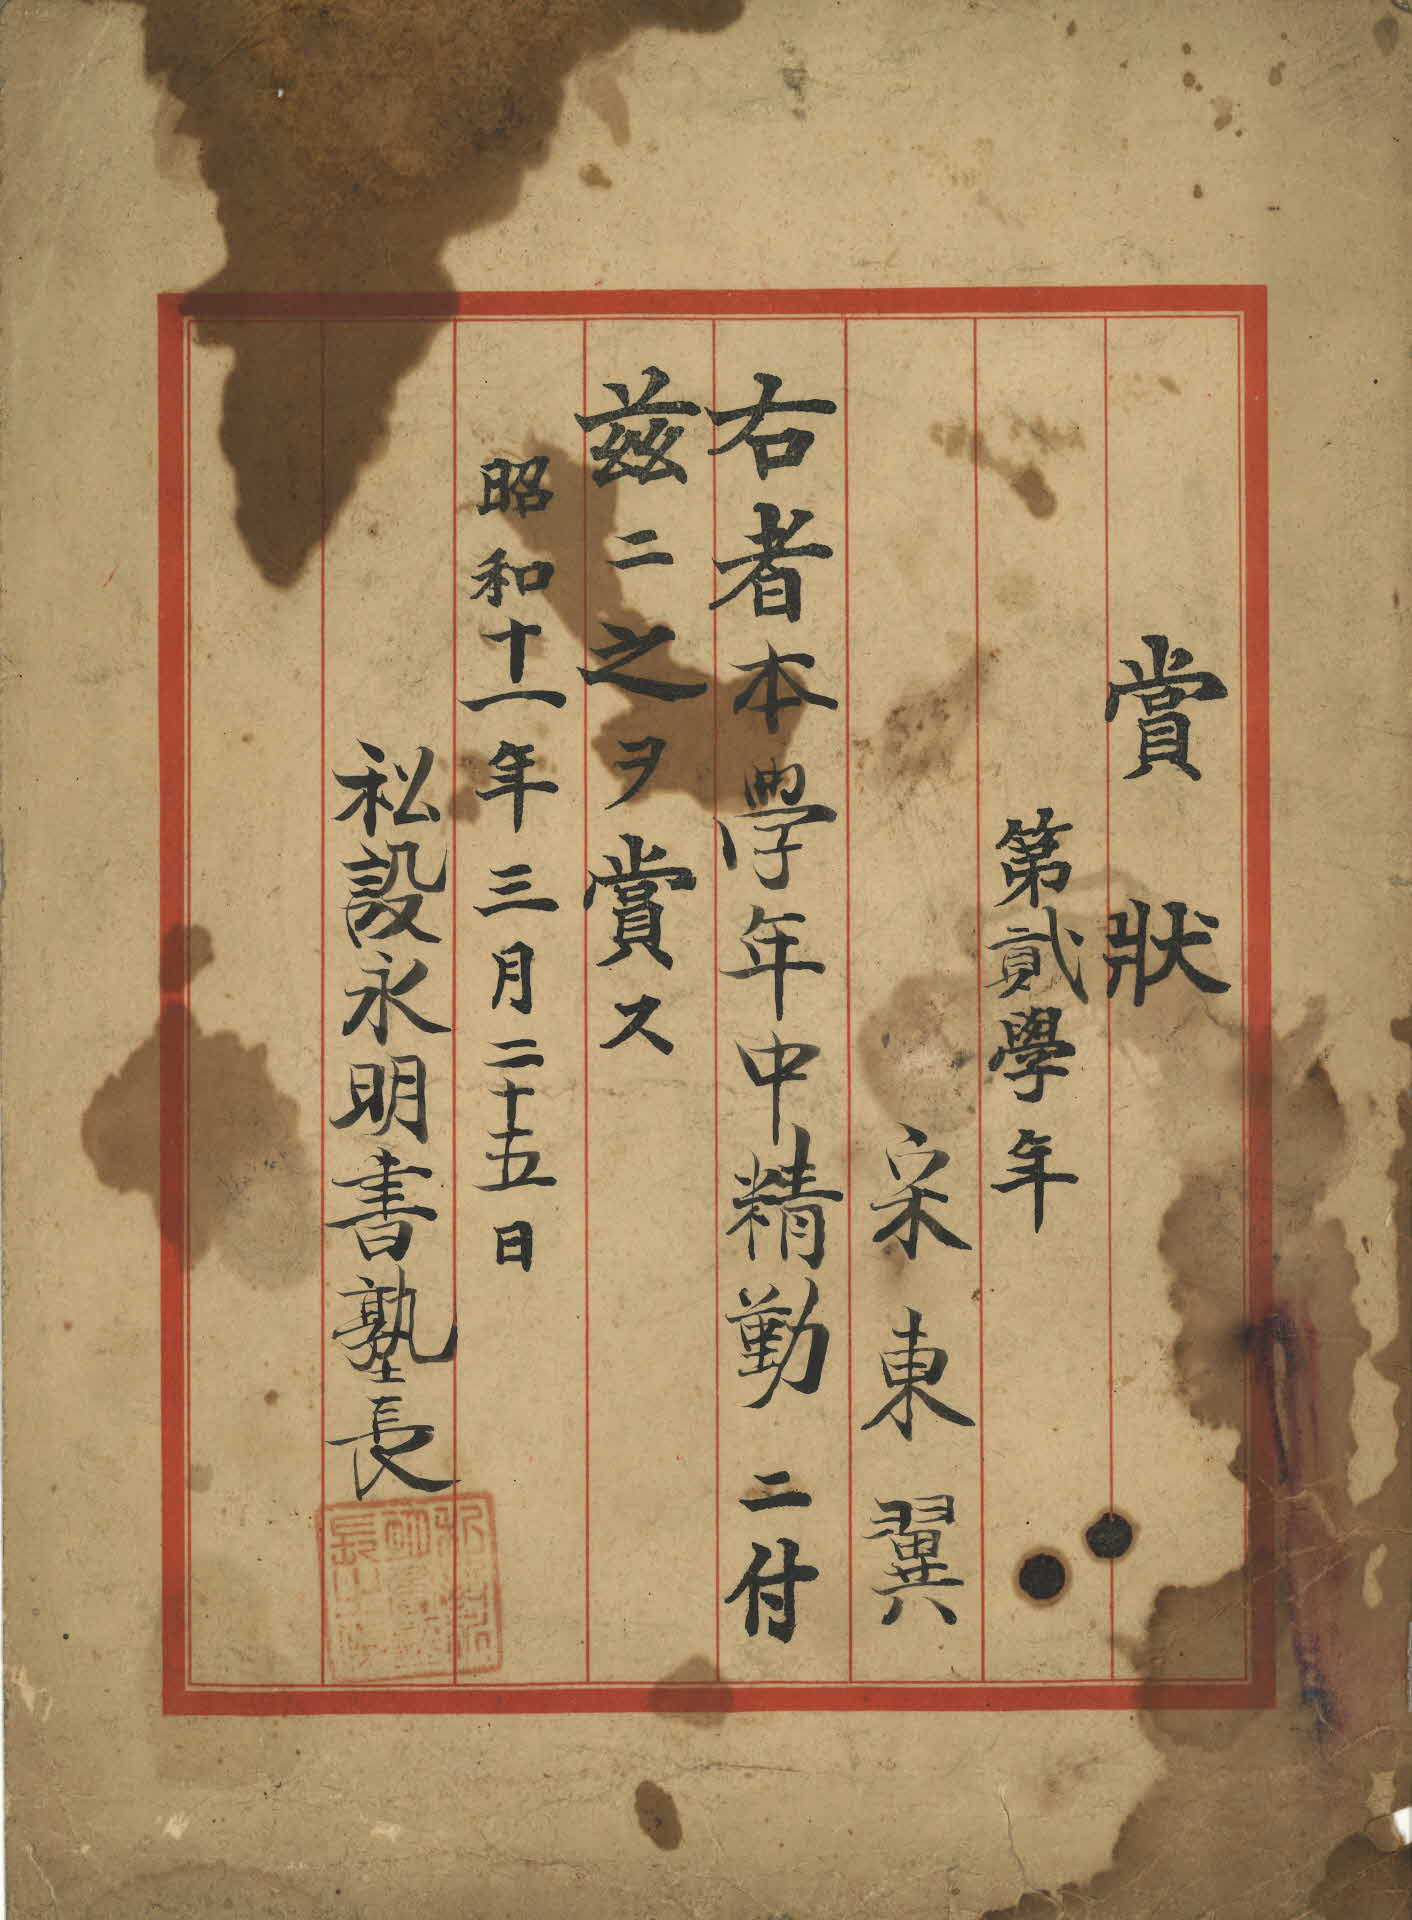 賞狀
第貳學年
宋東翼
右者本學年中精勤ニ付
茲ニ之ヲ賞ス
昭和十一年三月二十五日
私設永明書塾長